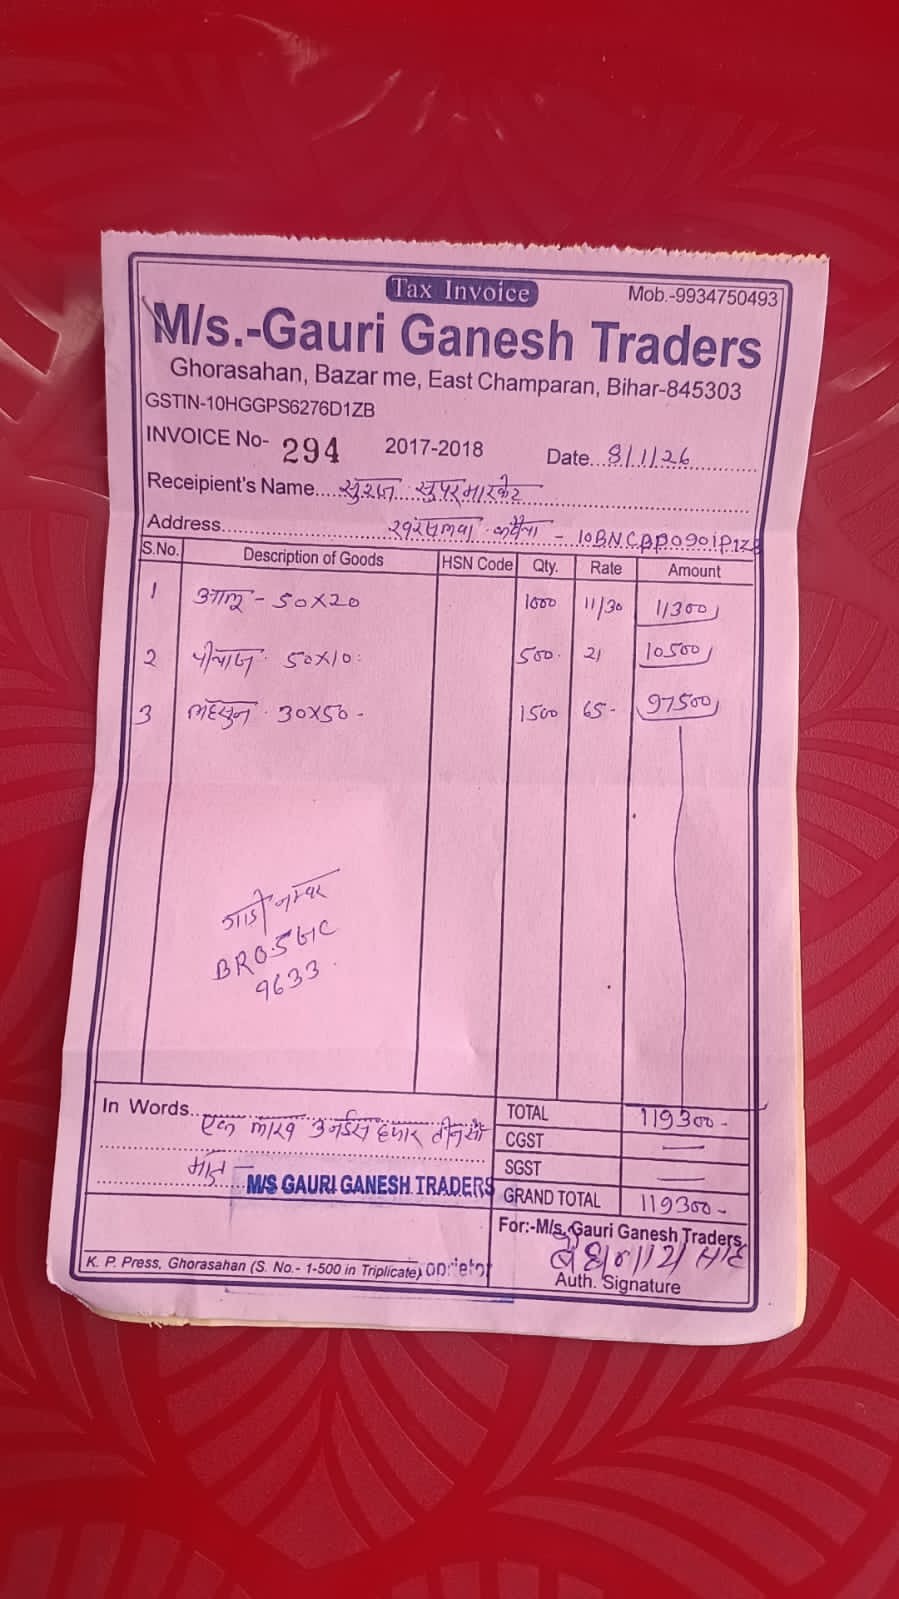 Tax Invoice
Mob.-9934750493
M/s.-Gauri Ganesh Traders
Ghorasahan, Bazar me, East Champaran, Bihar-845303
GSTIN-10HGGPS6276D1ZB
INVOICE No- 294 2017-2018 Date 8/1/26
Receipient's Name सुरज सुपरमारकेट
Address
S.No. Description of Goods HSN Code Qty. Rate Amount
1 आलू - 50X20 1000 11/30 11300
2 पीयाज 50X10 500 21 10500
3 लहसुन 30X50 - 1500 65 - 97500
गाड़ी नम्बर
9633
In Words एक लाख उनईस हजार तीन सौ
मात्र
TOTAL 119300 -
CGST —
SGST —
GRAND TOTAL 119300 -
M/S GAURI GANESH TRADERS
For:-M/s. Gauri Ganesh Traders
Auth. Signature
K. P. Press, Ghorasahan (S. No.- 1-500 in Triplicate)